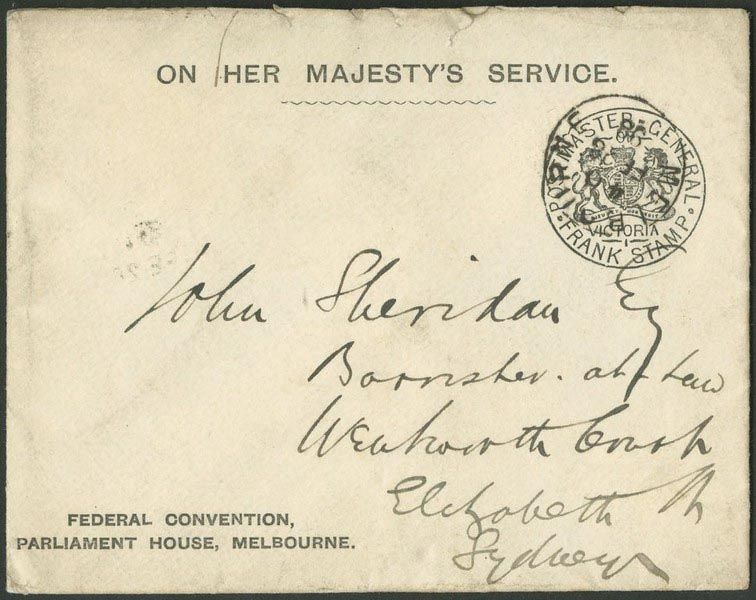 ON HER MAJESTY'S SERVICE.
POSTMASTER-GENERAL
VICTORIA
FRANK STAMP
MELBOURNE
John Sheridan Esq
Barrister-at-Law
Wentworth Court
Elizabeth St
Sydney
FEDERAL CONVENTION,
PARLIAMENT HOUSE, MELBOURNE.